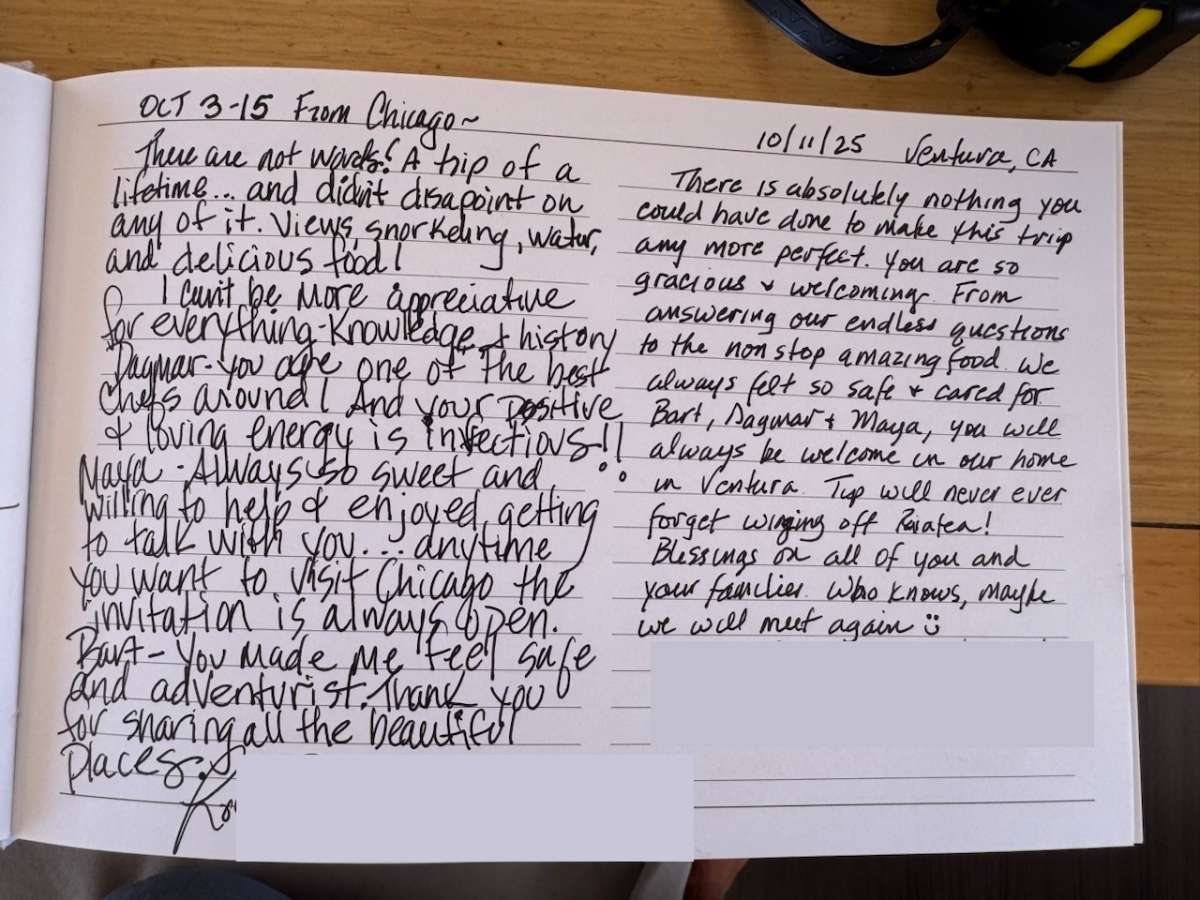 OCT 3-15 From Chicago~
There are not words! A trip of a
lifetime... and didn't disapoint on
any of it. Views, snorkeling, water,
and delicious food!
I can't be more appreciative
for everything - Knowledge & history
Dagmar - you are one of the best
Chefs around! And your positive
& loving energy is infectious!!
Maya - Always so sweet and
willing to help & enjoyed getting
to talk with you... anytime
you want to visit Chicago the
invitation is always open.
Bart - You made me feel safe
and adventurist. Thank you
for sharing all the beautiful
places.
10/11/25 Ventura, CA
There is absolutely nothing you
could have done to make this trip
any more perfect. You are so
gracious & welcoming. From
answering our endless questions
to the non stop amazing food. We
always felt so safe & cared for
Bart, Dagmar & Maya, you will
always be welcome in our home
in Ventura. will never ever
forget winging off Raiatea!
Blessings on all of you and
your families. Who knows, maybe
we will meet again